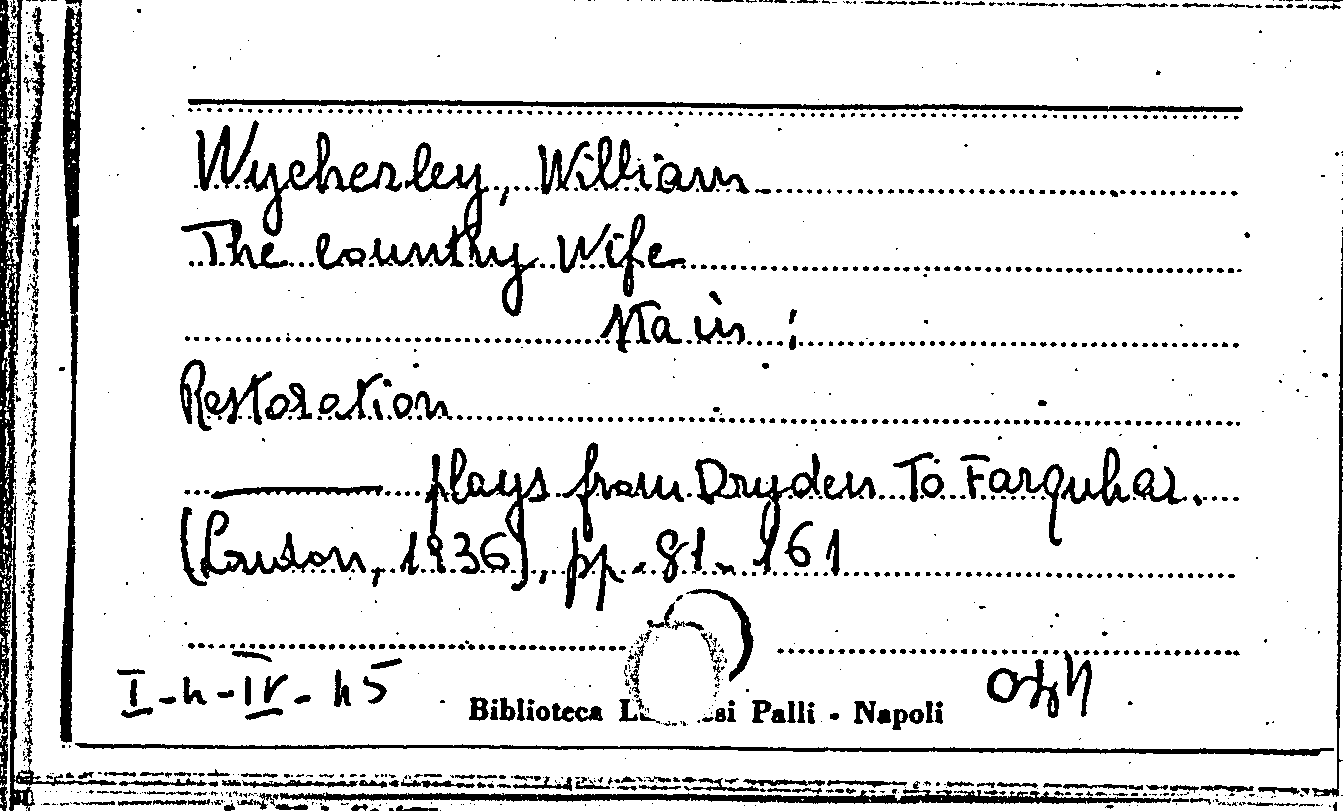 Wycherley, William
The country Wife
sta in :
Restoration
plays from Dryden To Farquhar.
(London, 1936), pp. 81-161
I-4-IV-45
Biblioteca L si Palli - Napoli